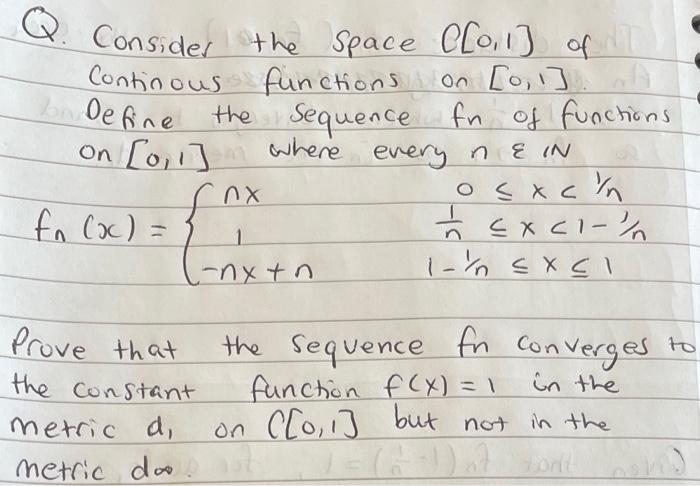 Q. Consider the space C[0,1] of
Continous functions on [0,1].
Define the sequence fn of functions
on [0,1] where every n ε IN
fn (x) = { nx 0 ≤ x < 1/n
1 1/n ≤ x < 1-1/n
-nx+n 1-1/n ≤ x ≤ 1
Prove that the sequence fn converges to
the constant function f(x) = 1 in the
metric d1 on C[0,1] but not in the
metric d∞.